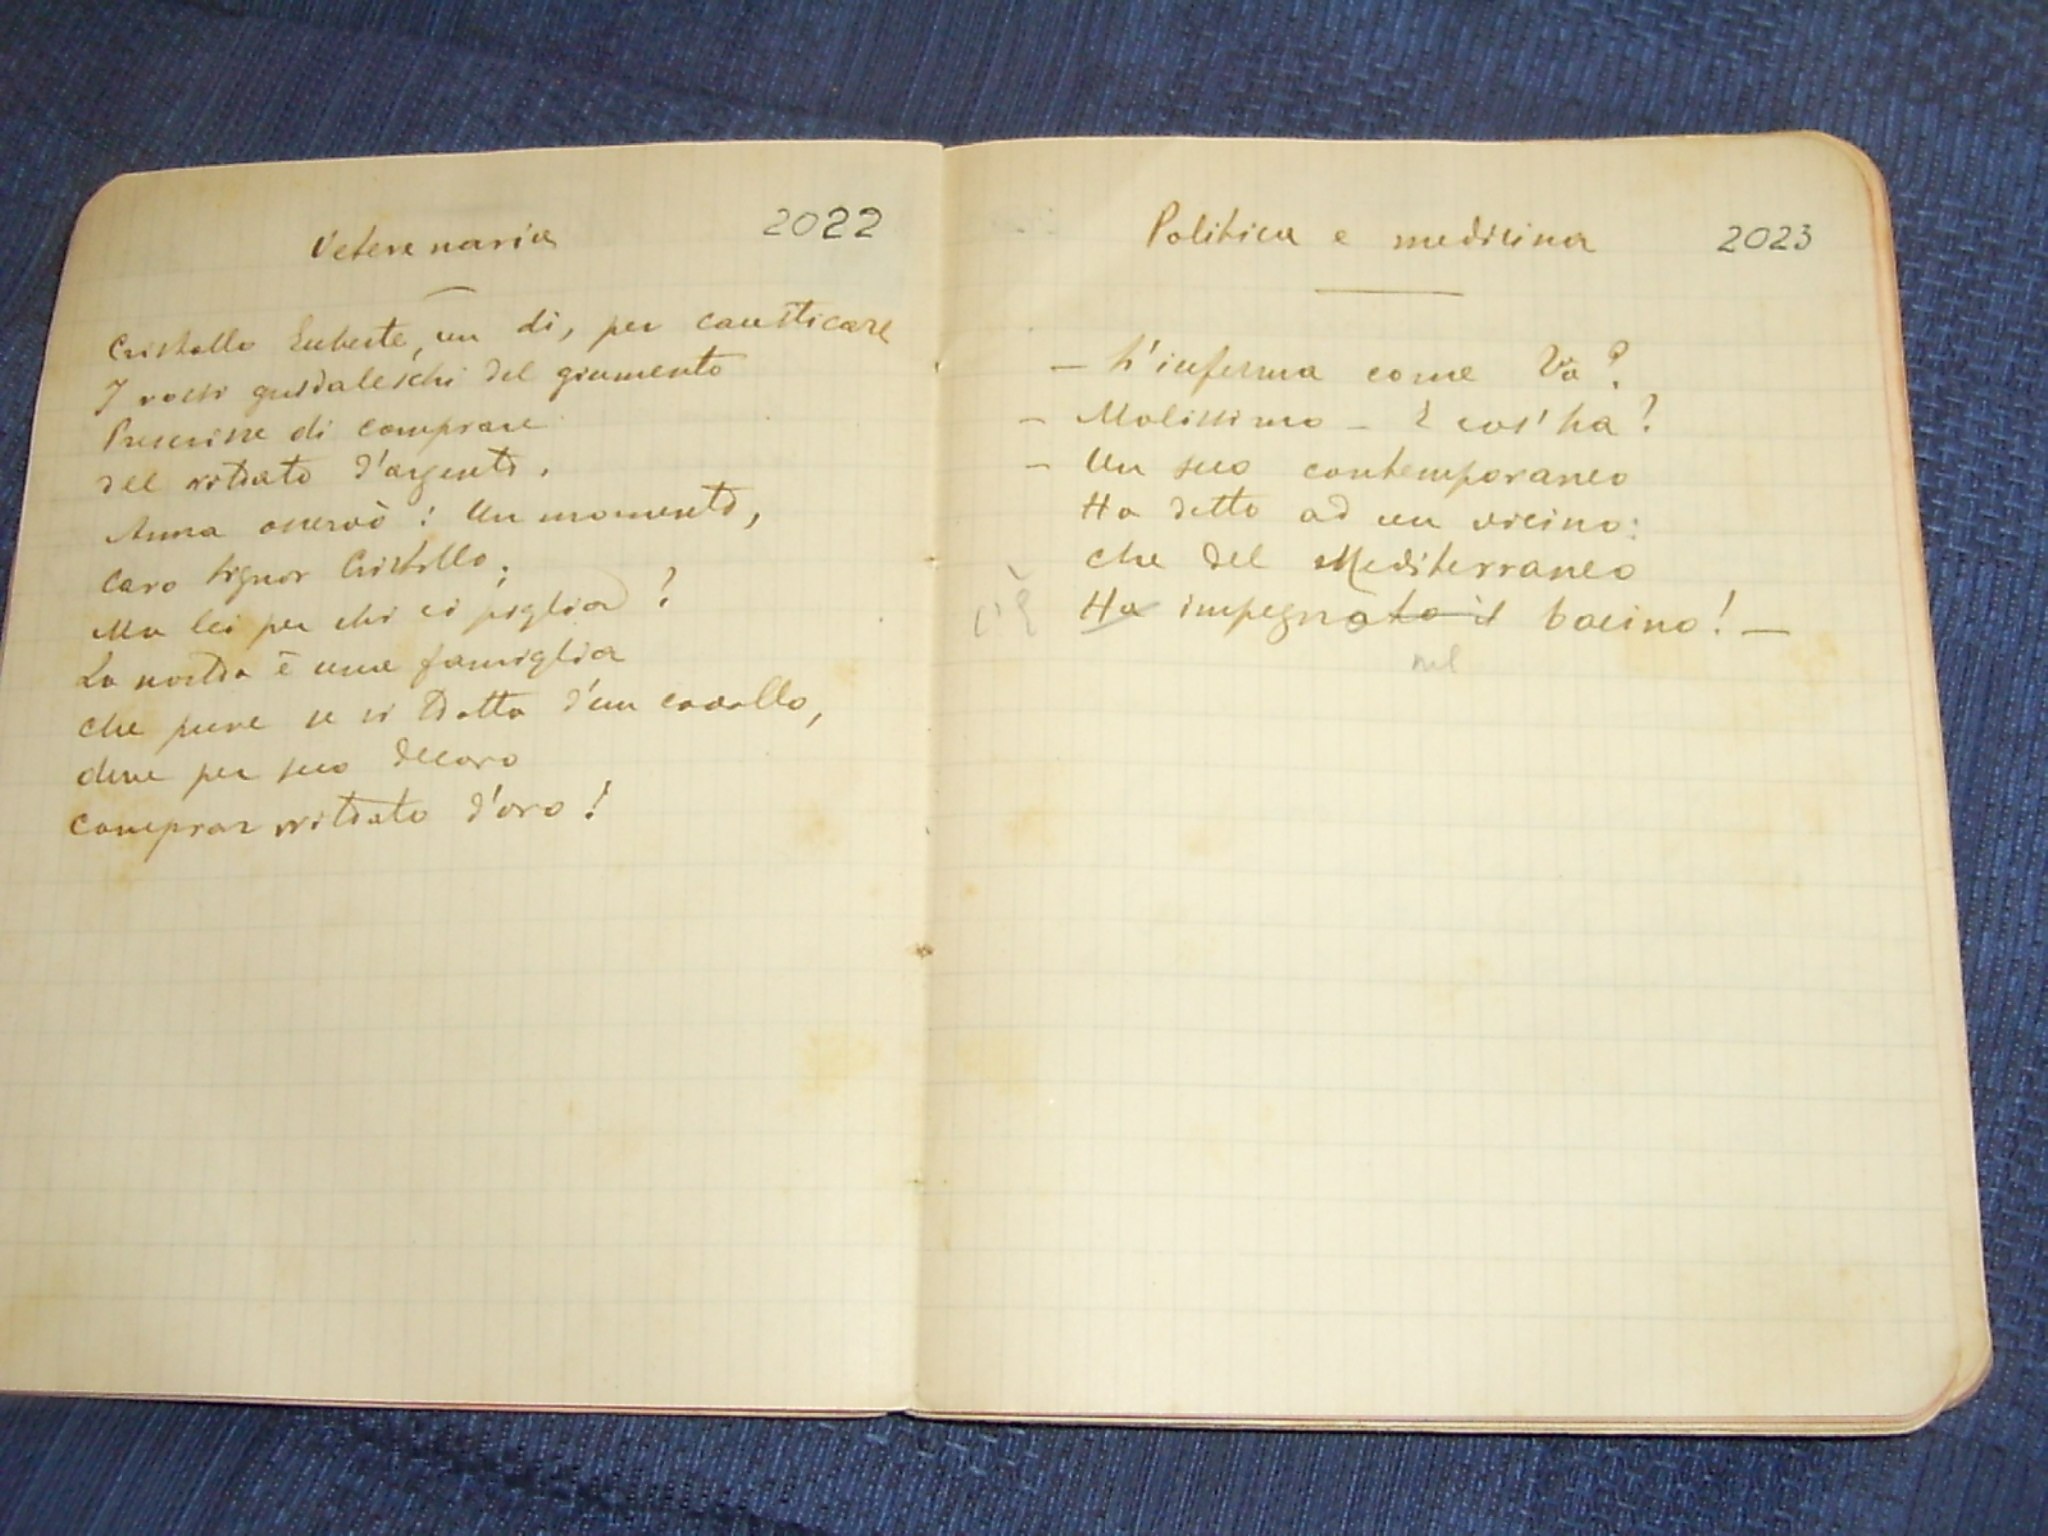 Veterenaria 2022
Cristallo Euberte, un dì, per causticare
I rossi guidaleschi del giumento
Prescrisse di comprare
del nitrato d'argento.
Anna osservò: Un momento,
Caro signor Cristallo;
Ma lei per chi ci piglia?
La nostra è una famiglia
che pure se si tratta d'un cavallo,
deve per suo decoro
comprar nitrato d'oro!
Politica e medicina 2023
— L'inferma come va?
— Malissimo — E cos'ha?
— Un suo contemporaneo
Ha detto ad un vicino:
che del Mediterraneo
c'è Ha impegnato il bacino! —
nel